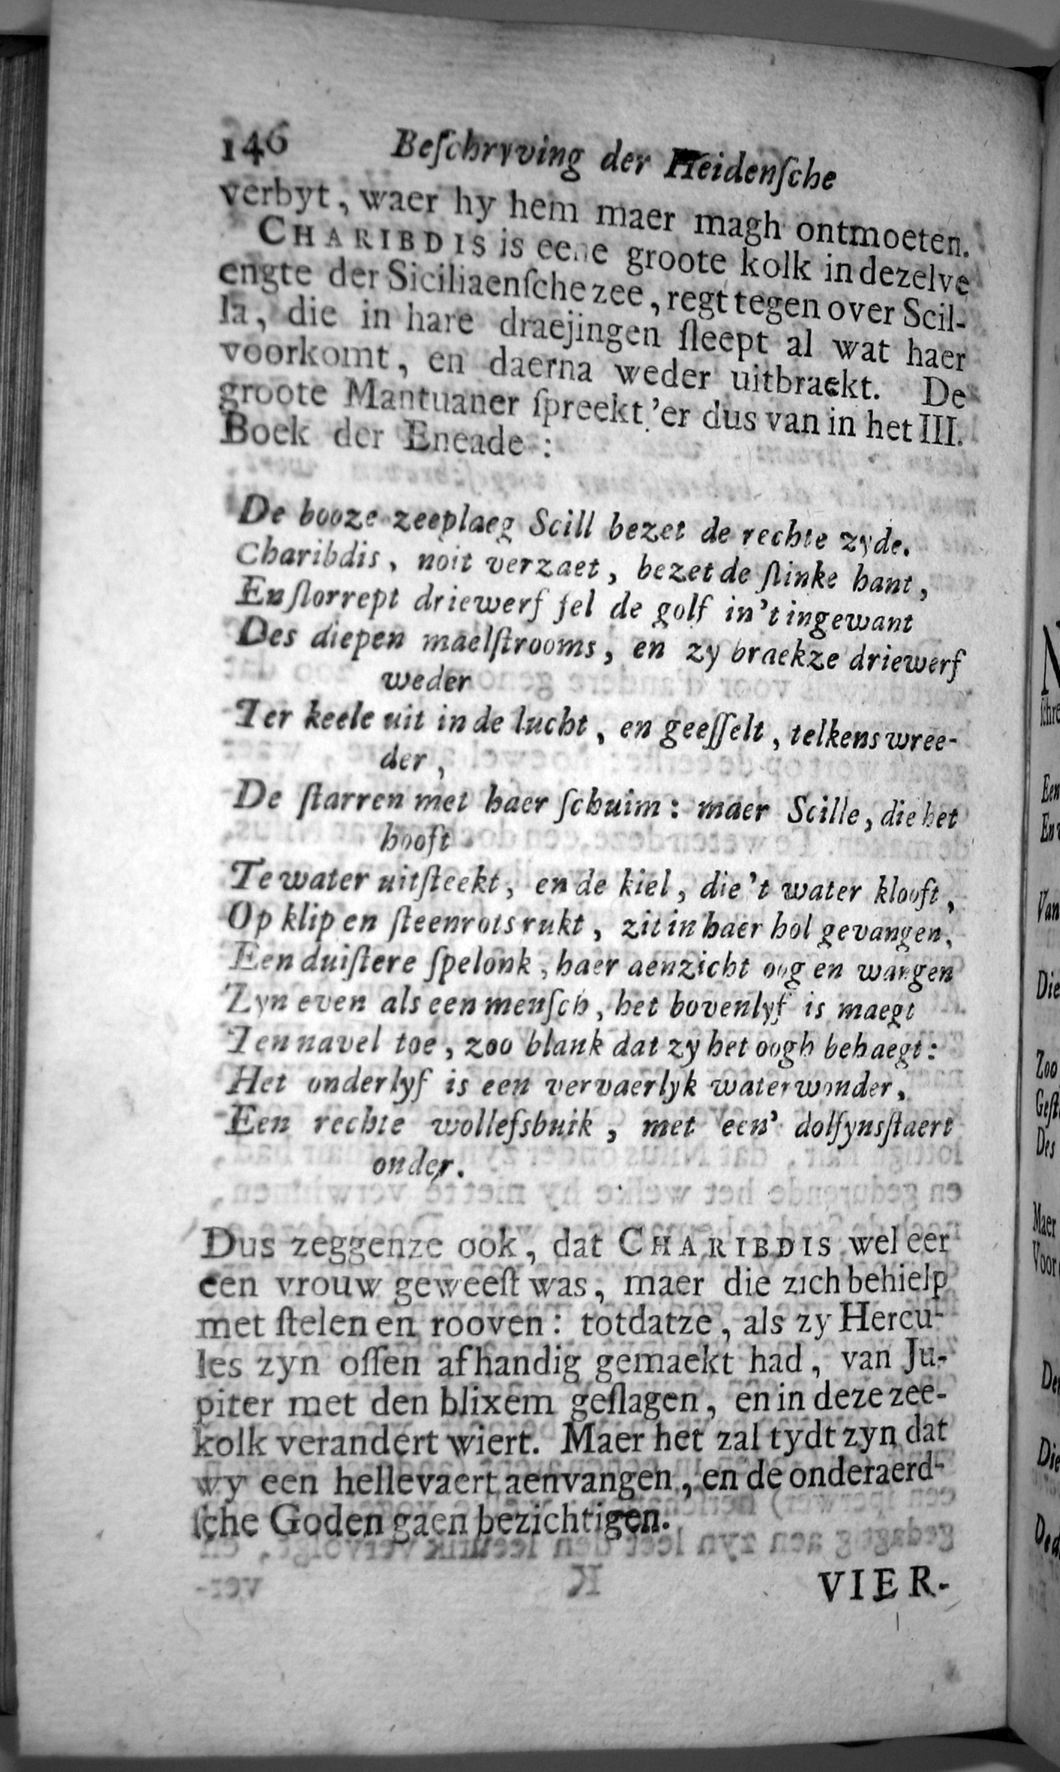 146 Beſchryving der Heidenſche
verbyt, waer hy hem maer magh ontmoeten.
CHARIBDIS is eene groote kolk in dezelve
engte der Siciliaenſche zee, regt tegen over Scil-
la, die in hare draejingen ſleept al wat haer
voorkomt, en daerna weder uitbraekt. De
groote Mantuaner ſpreekt 'er dus van in het III.
Boek der Eneade:
De booze zeeplaeg Scill bezet de rechte zyde.
Charibdis, noit verzaet, bezet de ſlinke hant,
En ſlorrept driewerf fel de golf in't ingewant
Des diepen maelſtrooms, en zy braekze driewerf
weder
Ter keele uit in de lucht, en geeſſelt, telkens wree-
der,
De ſtarren met haer ſchuim: maer Scille, die het
hooft
Te water uitſteekt, en de kiel, die 't water klooft,
Op klip en ſteenrots rukt, zit in haer hol gevangen,
Een duiſtere ſpelonk, haer aenzicht oog en wangen
Zyn even als een menſch, het bovenlyf is maegt
Ten navel toe, zoo blank dat zy het oogh behaegt:
Het onderlyf is een vervaerlyk waterwonder,
Een rechte wollefsbuik, met een' dolfynsſtaert
onder.
Dus zeggenze ook, dat CHARIBDIS wel eer
een vrouw geweeſt was, maer die zich behielp
met ſtelen en rooven: totdatze, als zy Hercu-
les zyn oſſen afhandig gemaekt had, van Ju-
piter met den blixem geſlagen, en in deze zee-
kolk verandert wiert. Maer het zal tydt zyn dat
wy een hellevaert aenvangen, en de onderaerd-
ſche Goden gaen bezichtigen.
VIER-